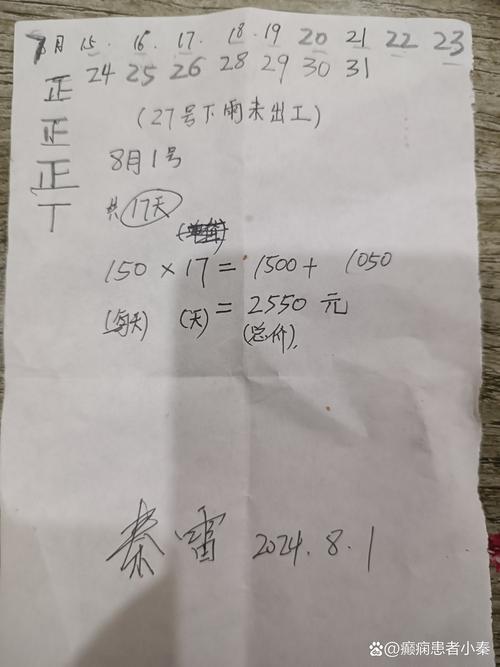 7月 15. 16. 17. 18. 19 20 21 22 23
24 25 26 28 29 30 31
正
正
正
丅
(27号下雨未出工)
8月1号
共17天
150×17=1500+ 1050
(每天) (天) =2550元
(总价).
秦雷 2024.8.1
癫痫患者小秦